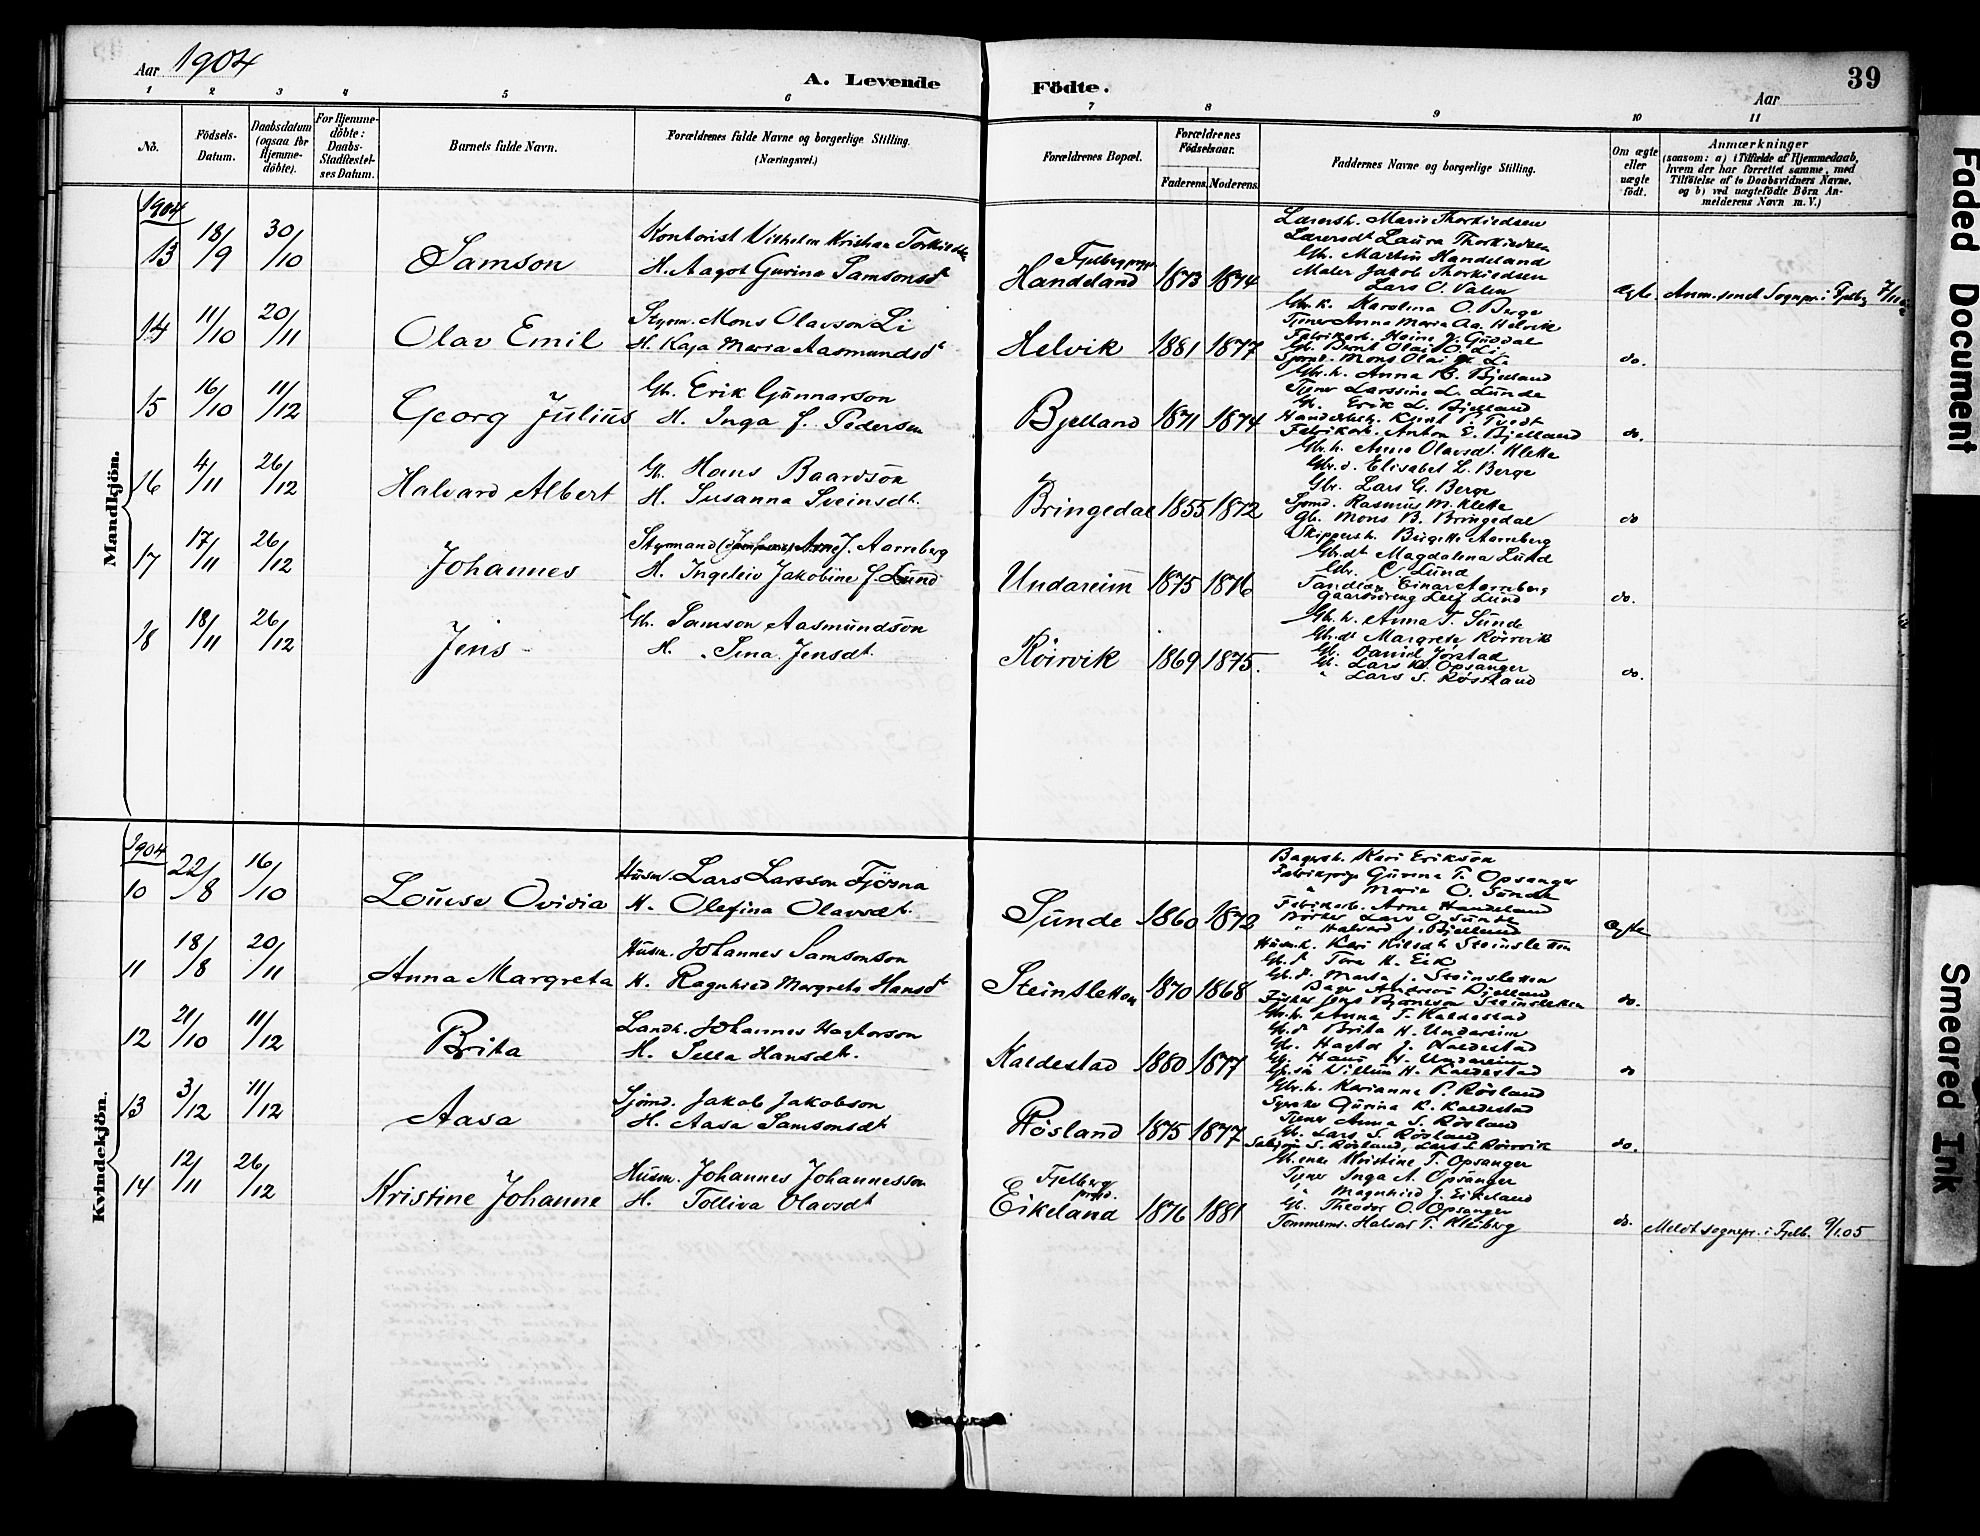 Aar 1904
A. Levende
Födte.
Aar
39
1 2 3 4 5 6 7 8 9 10 11
No.
Födsels-
Datum.
Daabsdatum
(ogsaa for
Hjemme-
döbte).
For Hjemme-
döbte:
Daabs-
Stadfæstel-
ses Datum.
Barnets fulde Navn.
Forældrenes fulde Navne og borgerlige Stilling.
(Næringsvei.)
Forældrenes Bopæl.
Forældrenes
Födselsaar.
Faderens. Moderens.
Faddernes Navne og borgerlige Stilling.
Om ægte
eller
uægte
födt.
Anmærkninger
(saasom: a) i Tilfælde af Hjemmedaab,
hvem der har forrettet samme, med
Tilföielse af to Daabsvidners Navne,
og b) ved uægtefödte Börn An-
melderens Navn m. V.)
Mandkjön.
1904
13 18/9 30/10 Samson
Kontorist Vilhelm Kristian
H. Aagot Gurina Samsonsdt
Fjelberg
Handeland 1873 1874
Lærersk. Marie Thorkildsen
Lærersdt Laura Thorkildsen
Gb. Martin Handeland
Maler Jakob Thorkildsen
Lars O. Valen
Ægte
Anm. sendt Sognepr. i Fjelbg
14 11/10 20/11 Olav Emil
Styrm. Mons Olavson Li
H. Kaja Maria Aasmundsdt
Helvik 1881 1877
Gbr. k. Karolina O. Berge
Tjener Anna Maria Aa. Helvik
Fabrikarb. Heine J. Guddal
Gb. Bernt Olai O. Li
Sjømd. Mons Olai Li
do.
15 16/10 11/12 Georg Julius
Gb. Erik Gunnarson
H. Inga f. Pedersen
Bjelland 1871 1874
Gbr. k. Anna E. Bjelland
Tjener Larssine L. Lunde
Gb. Erik L. Bjelland
Handelsb. Knut P. Tvedt
Fabrikarb. Anton E. Bjelland
do.
16 4/11 26/12 Halvard Albert
Gb. Hans Baardson
H. Susanna Sveinsdt.
Bringedal 1855 1872
Gbr. k. Anna Olavsdt. Klette
Gbr. d. Elisabet L. Berge
Gbr. Lars G. Berge
Sjømd. Rasmus M. Klette
Gb. Mons B. Bringedal
do
17 17/11 26/12 Johannes
Styrmand Arne J. Aarreberg
H. Ingeleiv Jakobine f. Lund
Undareim 1875 1876
Skippersk. Birgitte Aarreberg
Gbr.dt Magdalena Lund
Gbr. O. Lund
Tandlæg Einar Aarreberg
Gaardsdreng Leif Lund
do.
18 18/11 26/12 Jens
Gb. Samson Aasmundson
H. Sina Jensdt.
Röirvik 1869 1875.
Gbr. k. Anna T. Sunde
Gb. dt Margreta Röirvik
Gb. Daniel Jörstad
Gb. Lars Opsanger
" Lars S. Røssland
do.
Kvindekjön.
1904
10 22/8 16/10 Louise Ovidia
Husm. Lars Larsson Fjösna
H. Olefina Olavsdt.
Sunde 1860 1872
Bagersk. Kari Erikson
Fabrikpige Gurina T. Opsanger
" Maria O. Sunde
Fabrikarb. Arne Handeland
Lars O. Sunde
" Halvard J. Bjelland
Ægte
11 18/8 20/11 Anna Margreta
Husm. Johannes Samsonson
H. Ragnhild Margreta Hansdt
Steinsletten 1870 1868
Husm. k. Kari Nilsdt Steinsletten
Gb. d. Tora H. Eik
Gb. d. Marta J. Steinsletten
Bager Anderson Bjelland
Fisker Jens Steinsletten
do.
12 21/10 11/12 Brita
Landh. Johannes Hagtorson
H. Sella Hansdt.
Kaldestad 1880 1877
Gb. k. Anna T. Kaldestad
Gb. d. Brita H. Undareim
Gb. Hagtor J. Kaldestad
Gb. Hans H. Undareim
Gb. sön Villum H. Kaldestad
do
13 3/12 11/12 Aasa
Sjömd. Jakob Jakobson
H. Aasa Samsonsdt
Røsland 1875 1877
Gbr. k. Karianna P. Røsland
Syerske Gurina K. Kaldestad
Tjener Anna S. Røsland
Gb. Lars S. Røsland
S. Røsland, Lars S. Röirvik
do.
14 12/11 26/12 Kristine Johanne
Husm. Johannes Johannesson
H. Tolliva Olavsdt
Fjelberg
prgd.
Eikeland 1876 1881
Gb. enke Kristine T. Opsanger
Tjener Inga A. Opsanger
" Magnhild J. Eikeland
Gb. Theodor O. Opsanger
Tømmerm. Halvar T. Kleiberg
do.
Meldt sognepr. i Fjelb. 9/1.05
Faded Document
Smeared Ink